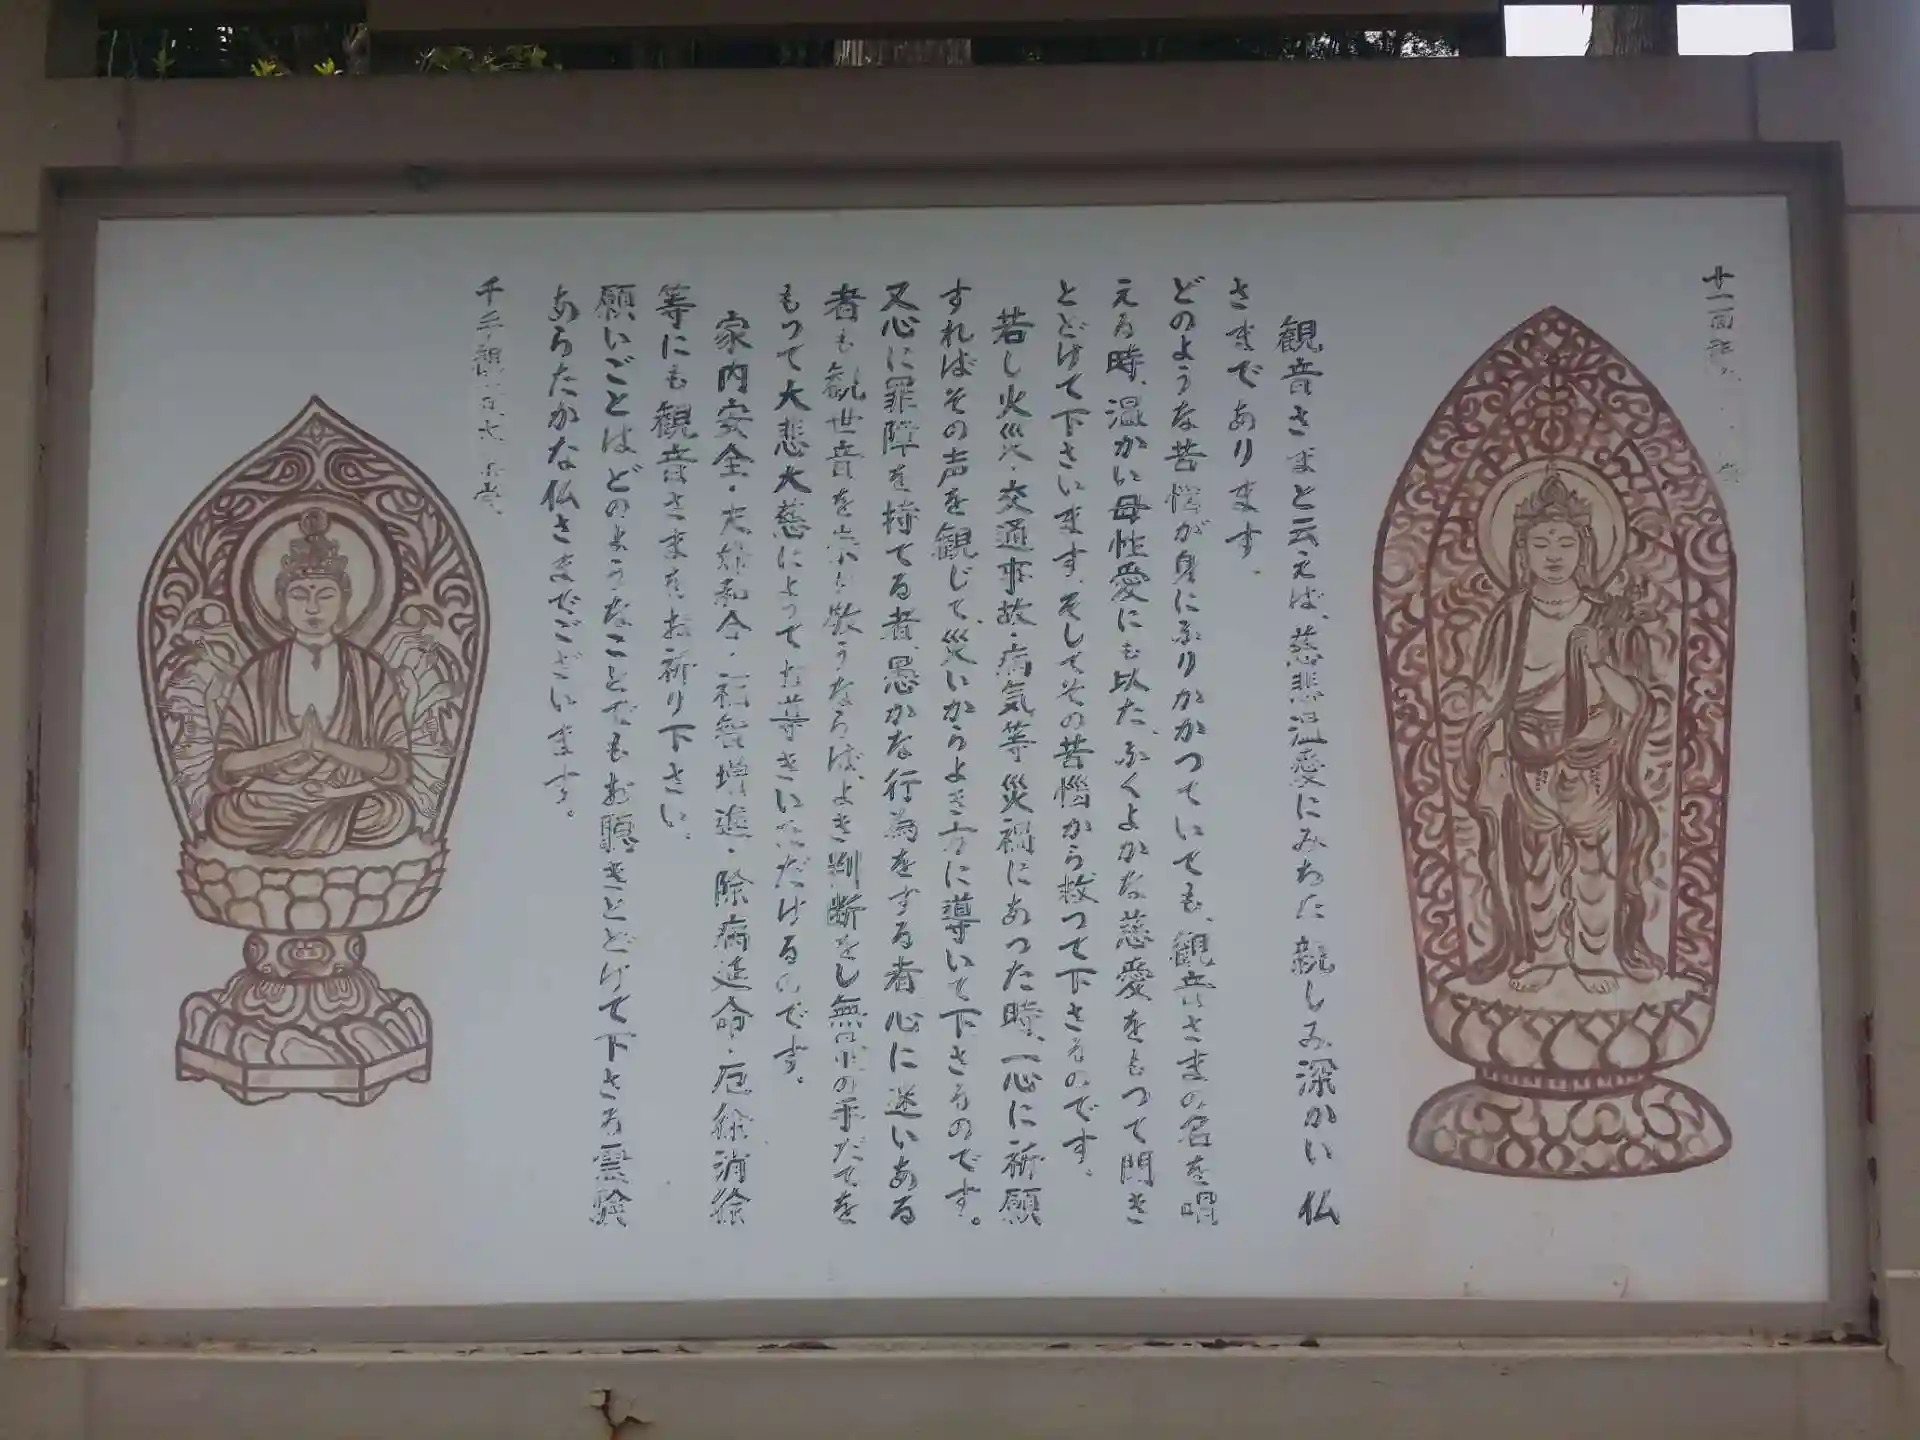 十一面観
観音さまと云えば、慈悲温愛にみちた親しみ深かい仏
さまであります。
どのような苦悩が身にふりかかつていても、観音さまの名を唱
える時、温かい母性愛にも以た、ふくよかな慈愛をもつて聞き
とどけて下さいます。そしてその苦悩から救つて下さるのです。
若し火災・交通事故・病気等災禍にあつた時、一心に祈願
すればその声を観じて、災いからよき方に導いて下さるのです。
又心に罪障を持てる者、愚かな行為をする者、心に迷いある
者も観世音を崇め敬うならば、よき判断をし無畏の手だてを
もつて大悲大慈によつてお導きいただけるのです。
家内安全・夫婦和合・福智増進・除病延命・厄除消除
等にも観音さまをお祈り下さい。
願いごとはどのようなことでもお聴きとどけて下さる霊験
あらたかな仏さまでございます。
千手観音